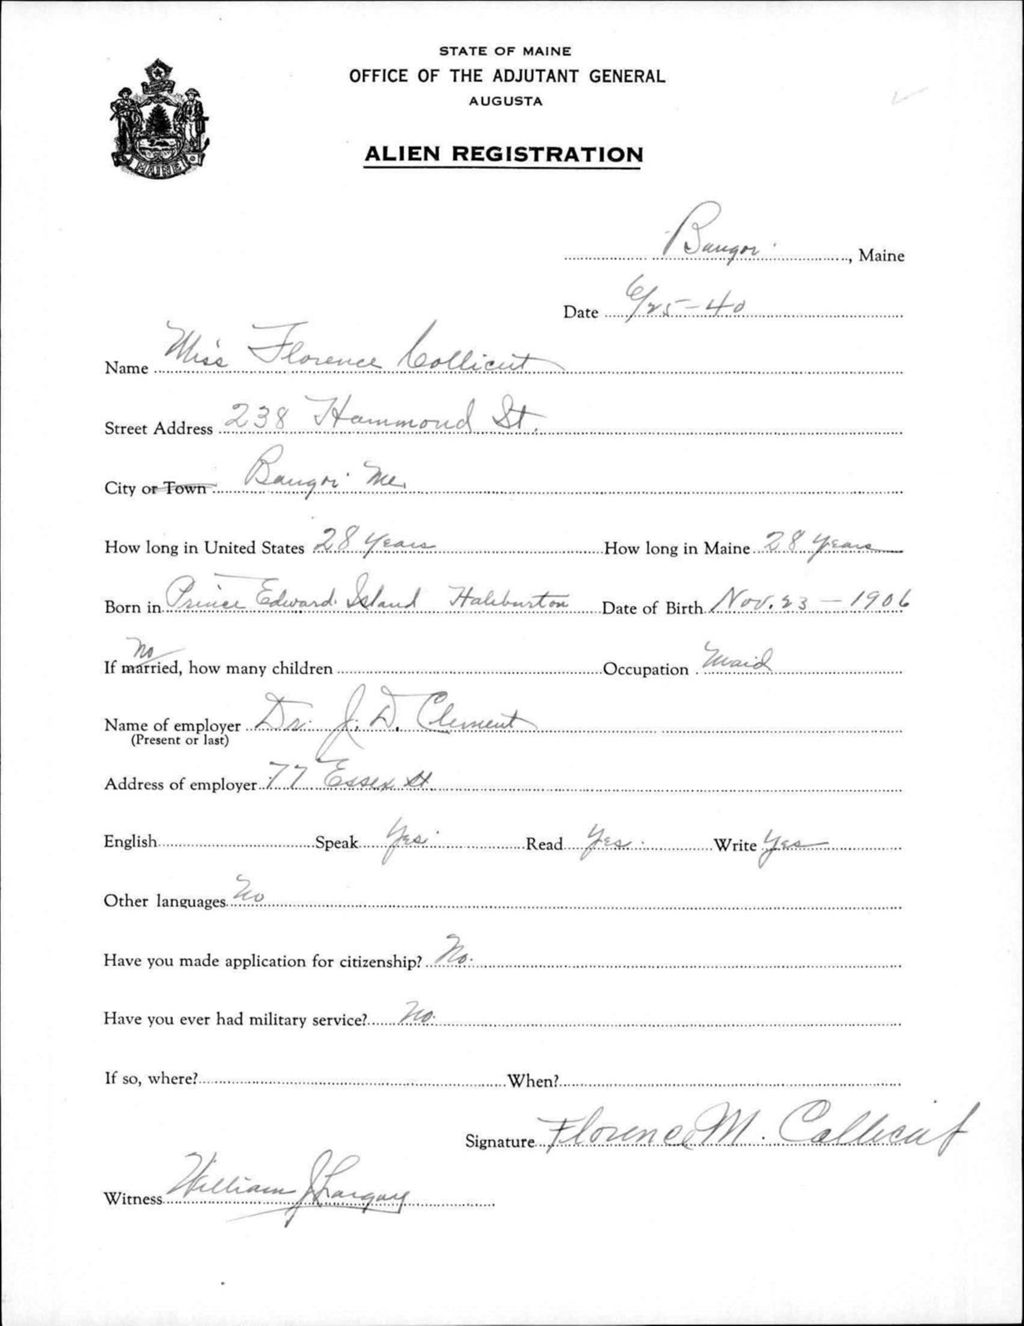 STATE OF MAINE
OFFICE OF THE ADJUTANT GENERAL
AUGUSTA
ALIEN REGISTRATION
MAINE
Bangor, Maine
Date 6/25-40
Name Miss Florence Collicut
Street Address 238 Hammond St.
City or Town Bangor Me.
How long in United States 28 years How long in Maine 28 years
Born in Prince Edward Island Haliburton Date of Birth Nov. 23 - 1906
No
If married, how many children Occupation Maid
Name of employer Dr. J. D. Clement
(Present or last)
Address of employer 77 Essex St.
English Speak Yes Read Yes Write Yes
Other languages No
Have you made application for citizenship? No.
Have you ever had military service? No.
If so, where? When?
Signature Florence M. Collicut
Witness William J